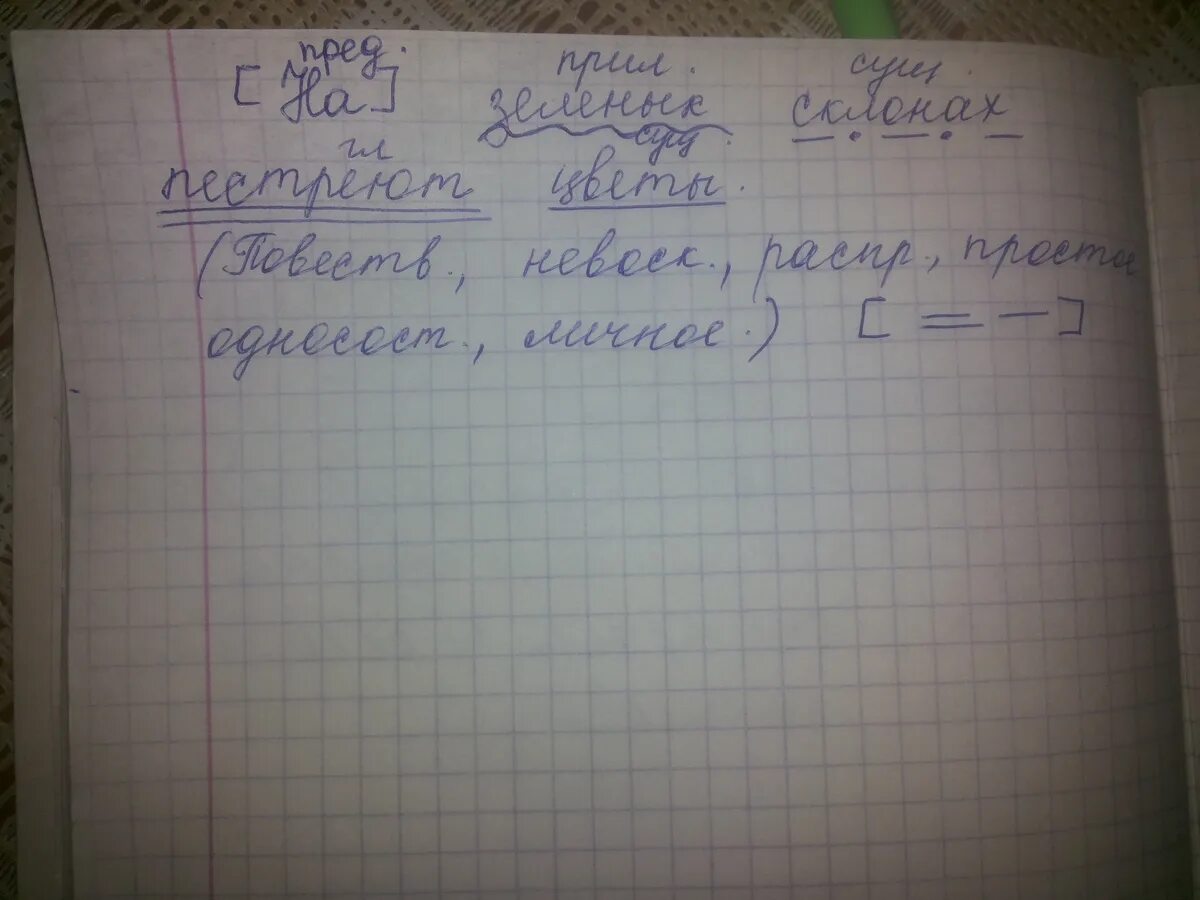 пред. прил. сущ.
[На] зеленык склонах
гл сущ.
пестреют цветы.
(Повеств., невоск., распр., простое
односост., личное.) [ = – ]